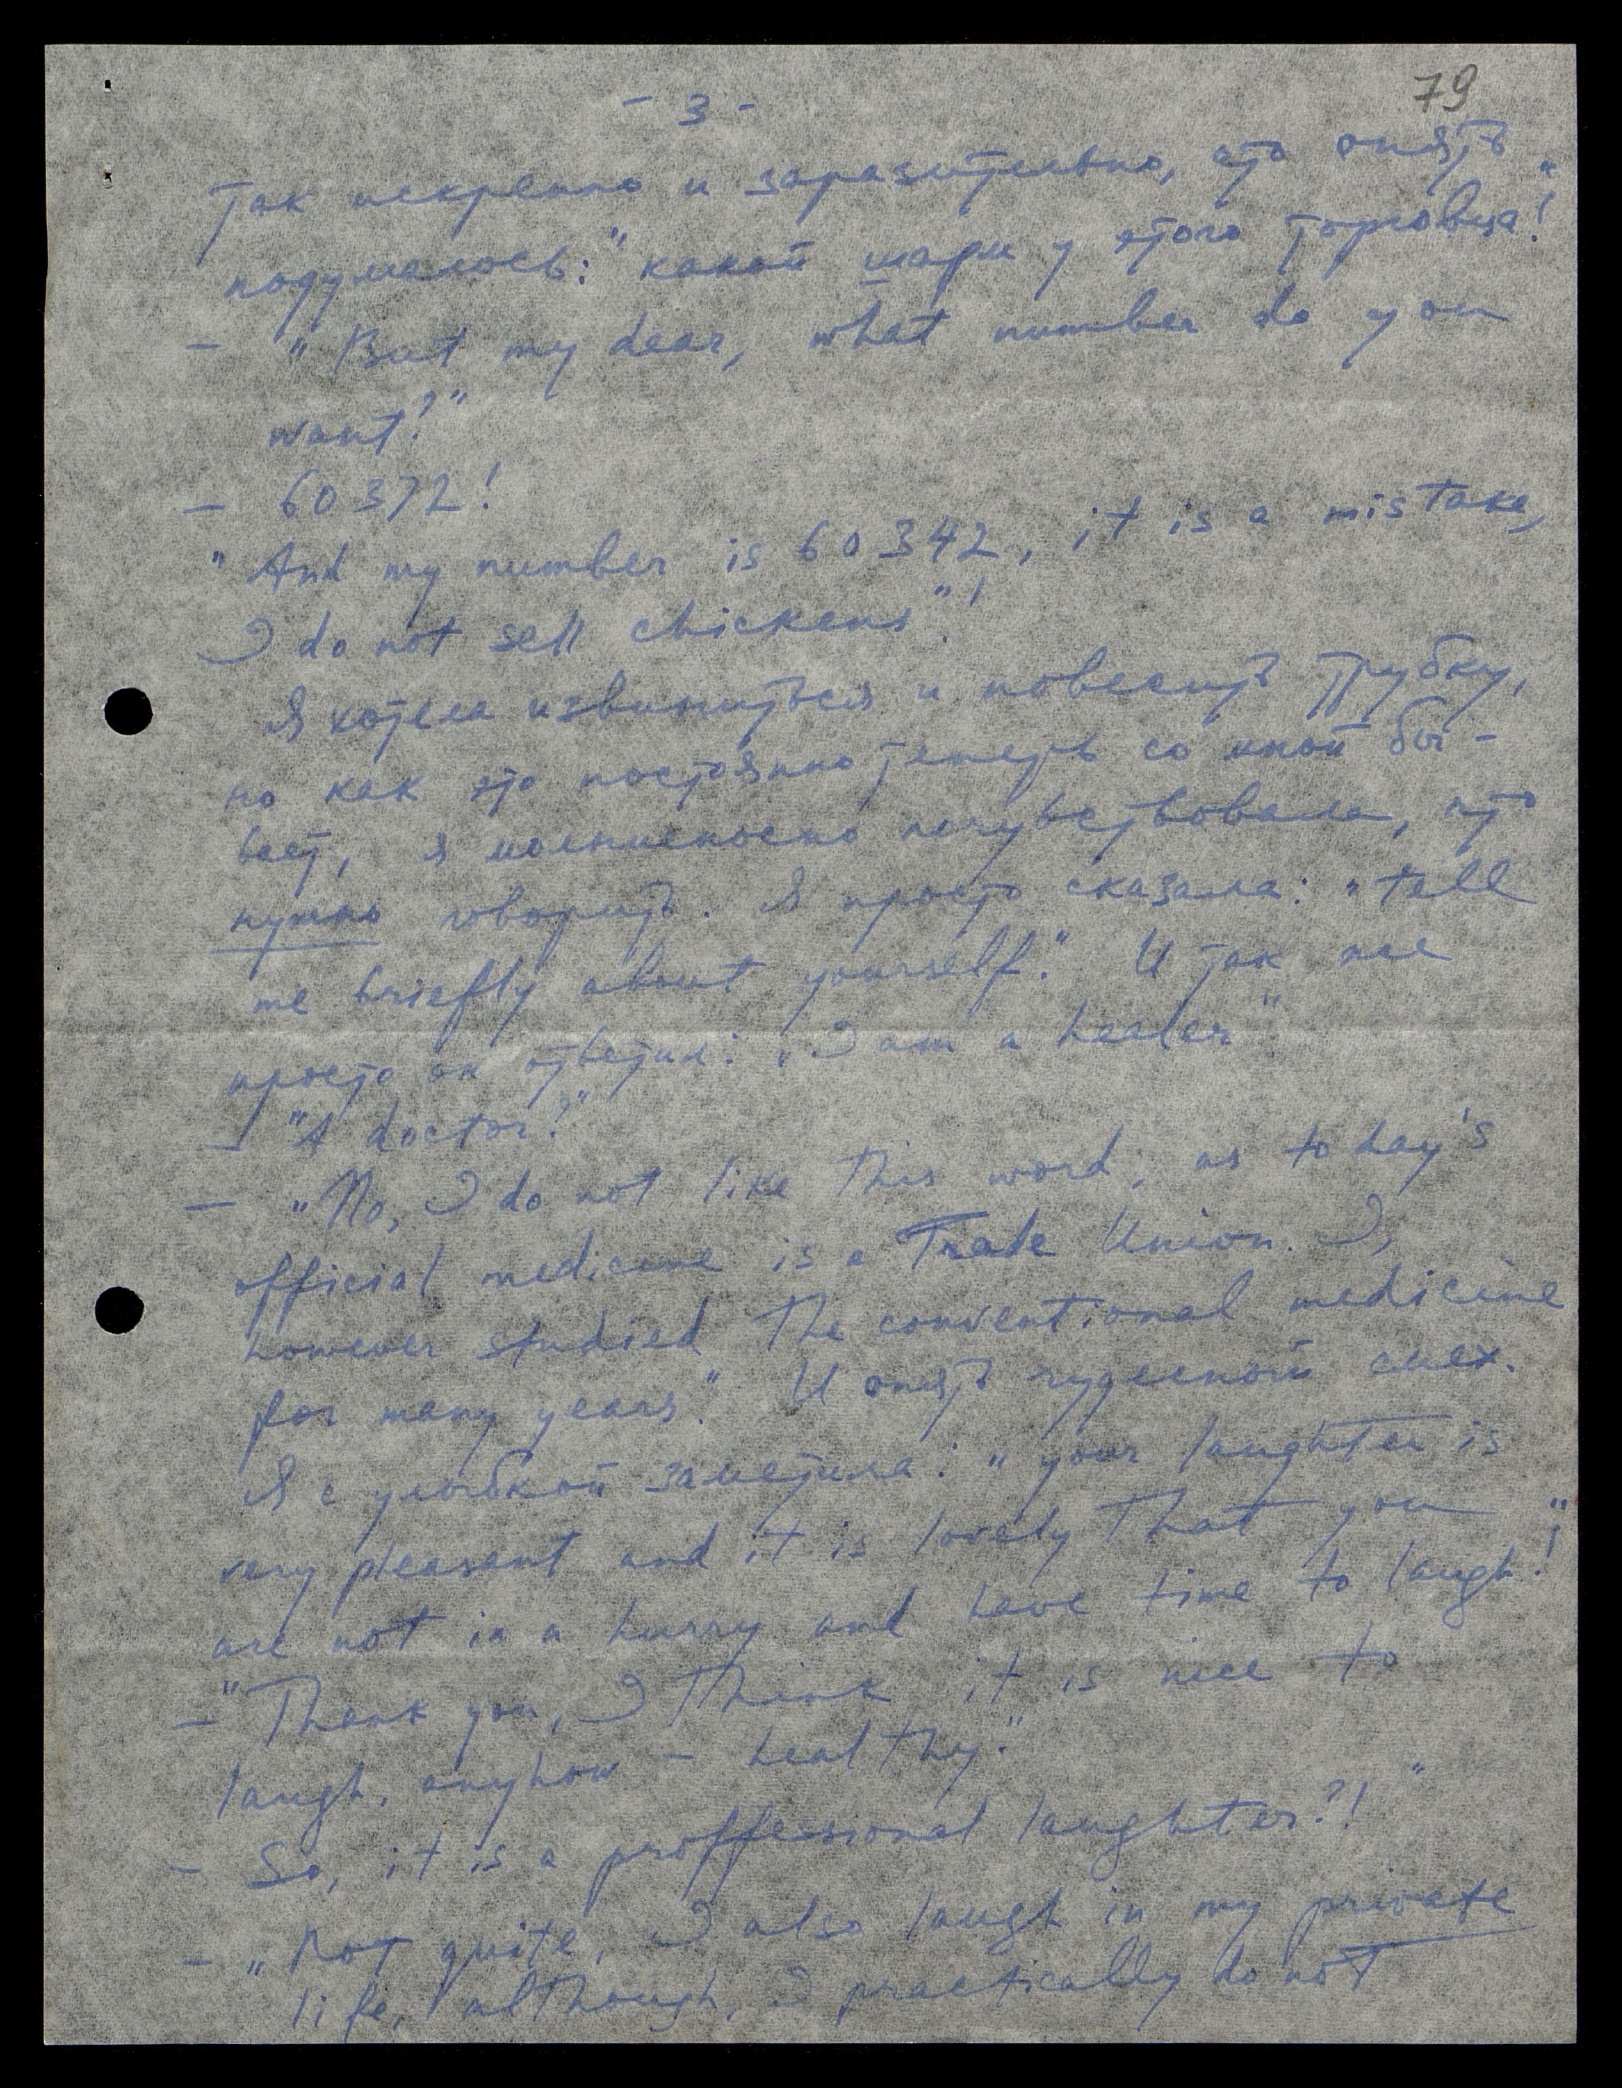 79
- 3 -
так искренно и заразительно, что опять
подумалось: "какой шарм у этого торговца!"
- "But my dear, what number do you
want?"
- 60372!
"And my number is 60342, it is a mistake,
I do not sell chickens"!
Я хотела извиниться и повесить трубку,
но как это постоянно теперь со мной бы-
вает, я молниеносно почувствовала, что
нужно говорить. Я просто сказала: "tell
me briefly about yourself." И так же
просто он ответил: "I am a healer"
- "A doctor?"
- "No, I do not like this word, as to day's
official medicine is a Trade Union. I,
however studied the conventional medicine
for many years." И опять чудесной смех.
Я с улыбкой заметила: "your laughter is
very pleasent and it is lovely that you
are not in a hurry and have time to laugh!"
- "Thank you, I think it is nice to
laugh, anyhow - healthy."
- So, it is a proffessional laughter?!"
- "Not quite, I also laugh in my private
life, although, I practically do not